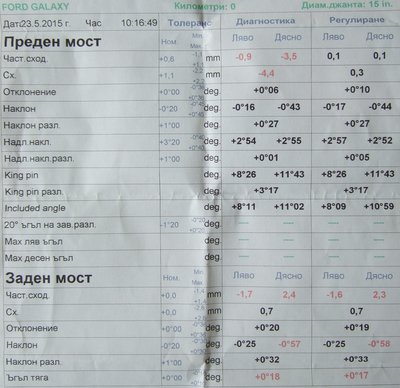 FORD GALAXY Километри: 0 Диам.джанта: 15 in.
Дата:23.5.2015 г. Час 10:16:49 Толеранс Диагностика Регулиране
Преден мост Ном. Ляво Дясно Ляво Дясно
Част.сход. +0,6 mm -0,9 -3,5 0,1 0,1
Сх. +1,1 mm -4,4 0,3
Отклонение +0°00 deg. +0°06 +0°10
Наклон -0°20 deg. -0°16 -0°43 -0°17 -0°44
Наклон разл. +1°00 deg. +0°27 +0°27
Надл.накл. +3°20 deg. +2°54 +2°55 +2°57 +2°52
Надл.накл.разл. +1°00 deg. +0°01 +0°05
King pin deg. +8°26 +11°43 +8°26 +11°43
King pin разл. deg. +3°17 +3°17
Included angle deg. +8°11 +11°02 +8°09 +10°59
20° ъгъл на зав.разл. -1°20 deg. --- --- --- ---
Мах ляв ъгъл deg. --- --- --- ---
Мах десен ъгъл deg. --- --- --- ---
Заден мост Ном. Min. Max. Ляво Дясно Ляво Дясно
Част.сход. +0,0 mm -1,7 2,4 -1,6 2,3
Сх. +0,0 mm 0,7 0,7
Отклонение +0°00 deg. +0°20 +0°19
Наклон deg. -0°25 -0°57 -0°25 -0°58
Наклон разл. +1°00 deg. +0°32 +0°33
Ъгъл тяга +0°00 deg. +0°18 +0°17